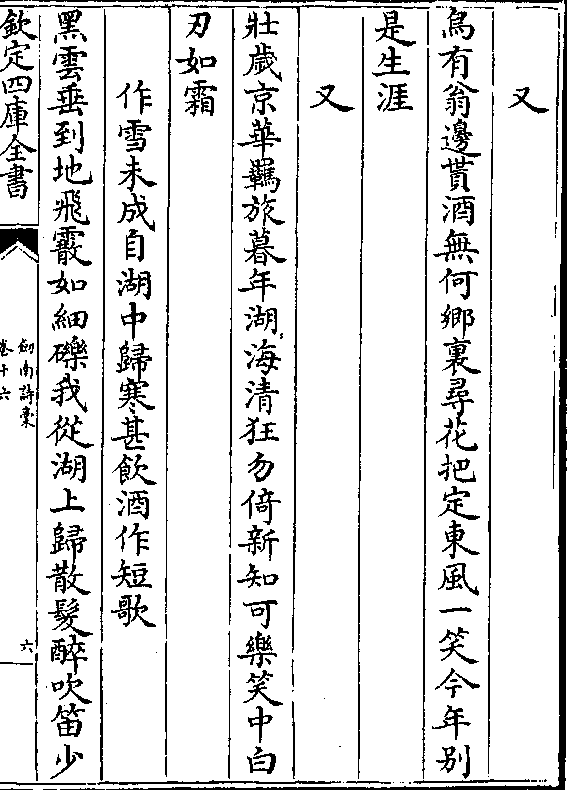 又
烏有翁邊貰酒無何鄉裏尋花把定東風一笑今年别
是生涯
又
壯歲京華羈旅暮年湖海清狂勿倚新知可樂笑中白
刃如霜
作雪未成自湖中歸寒甚飲酒作短歌
黑雲垂到地飛霰如細礫我從湖上歸散髮醉吹笛少
欽定四庫全書
劍南詩稾
卷十六
六